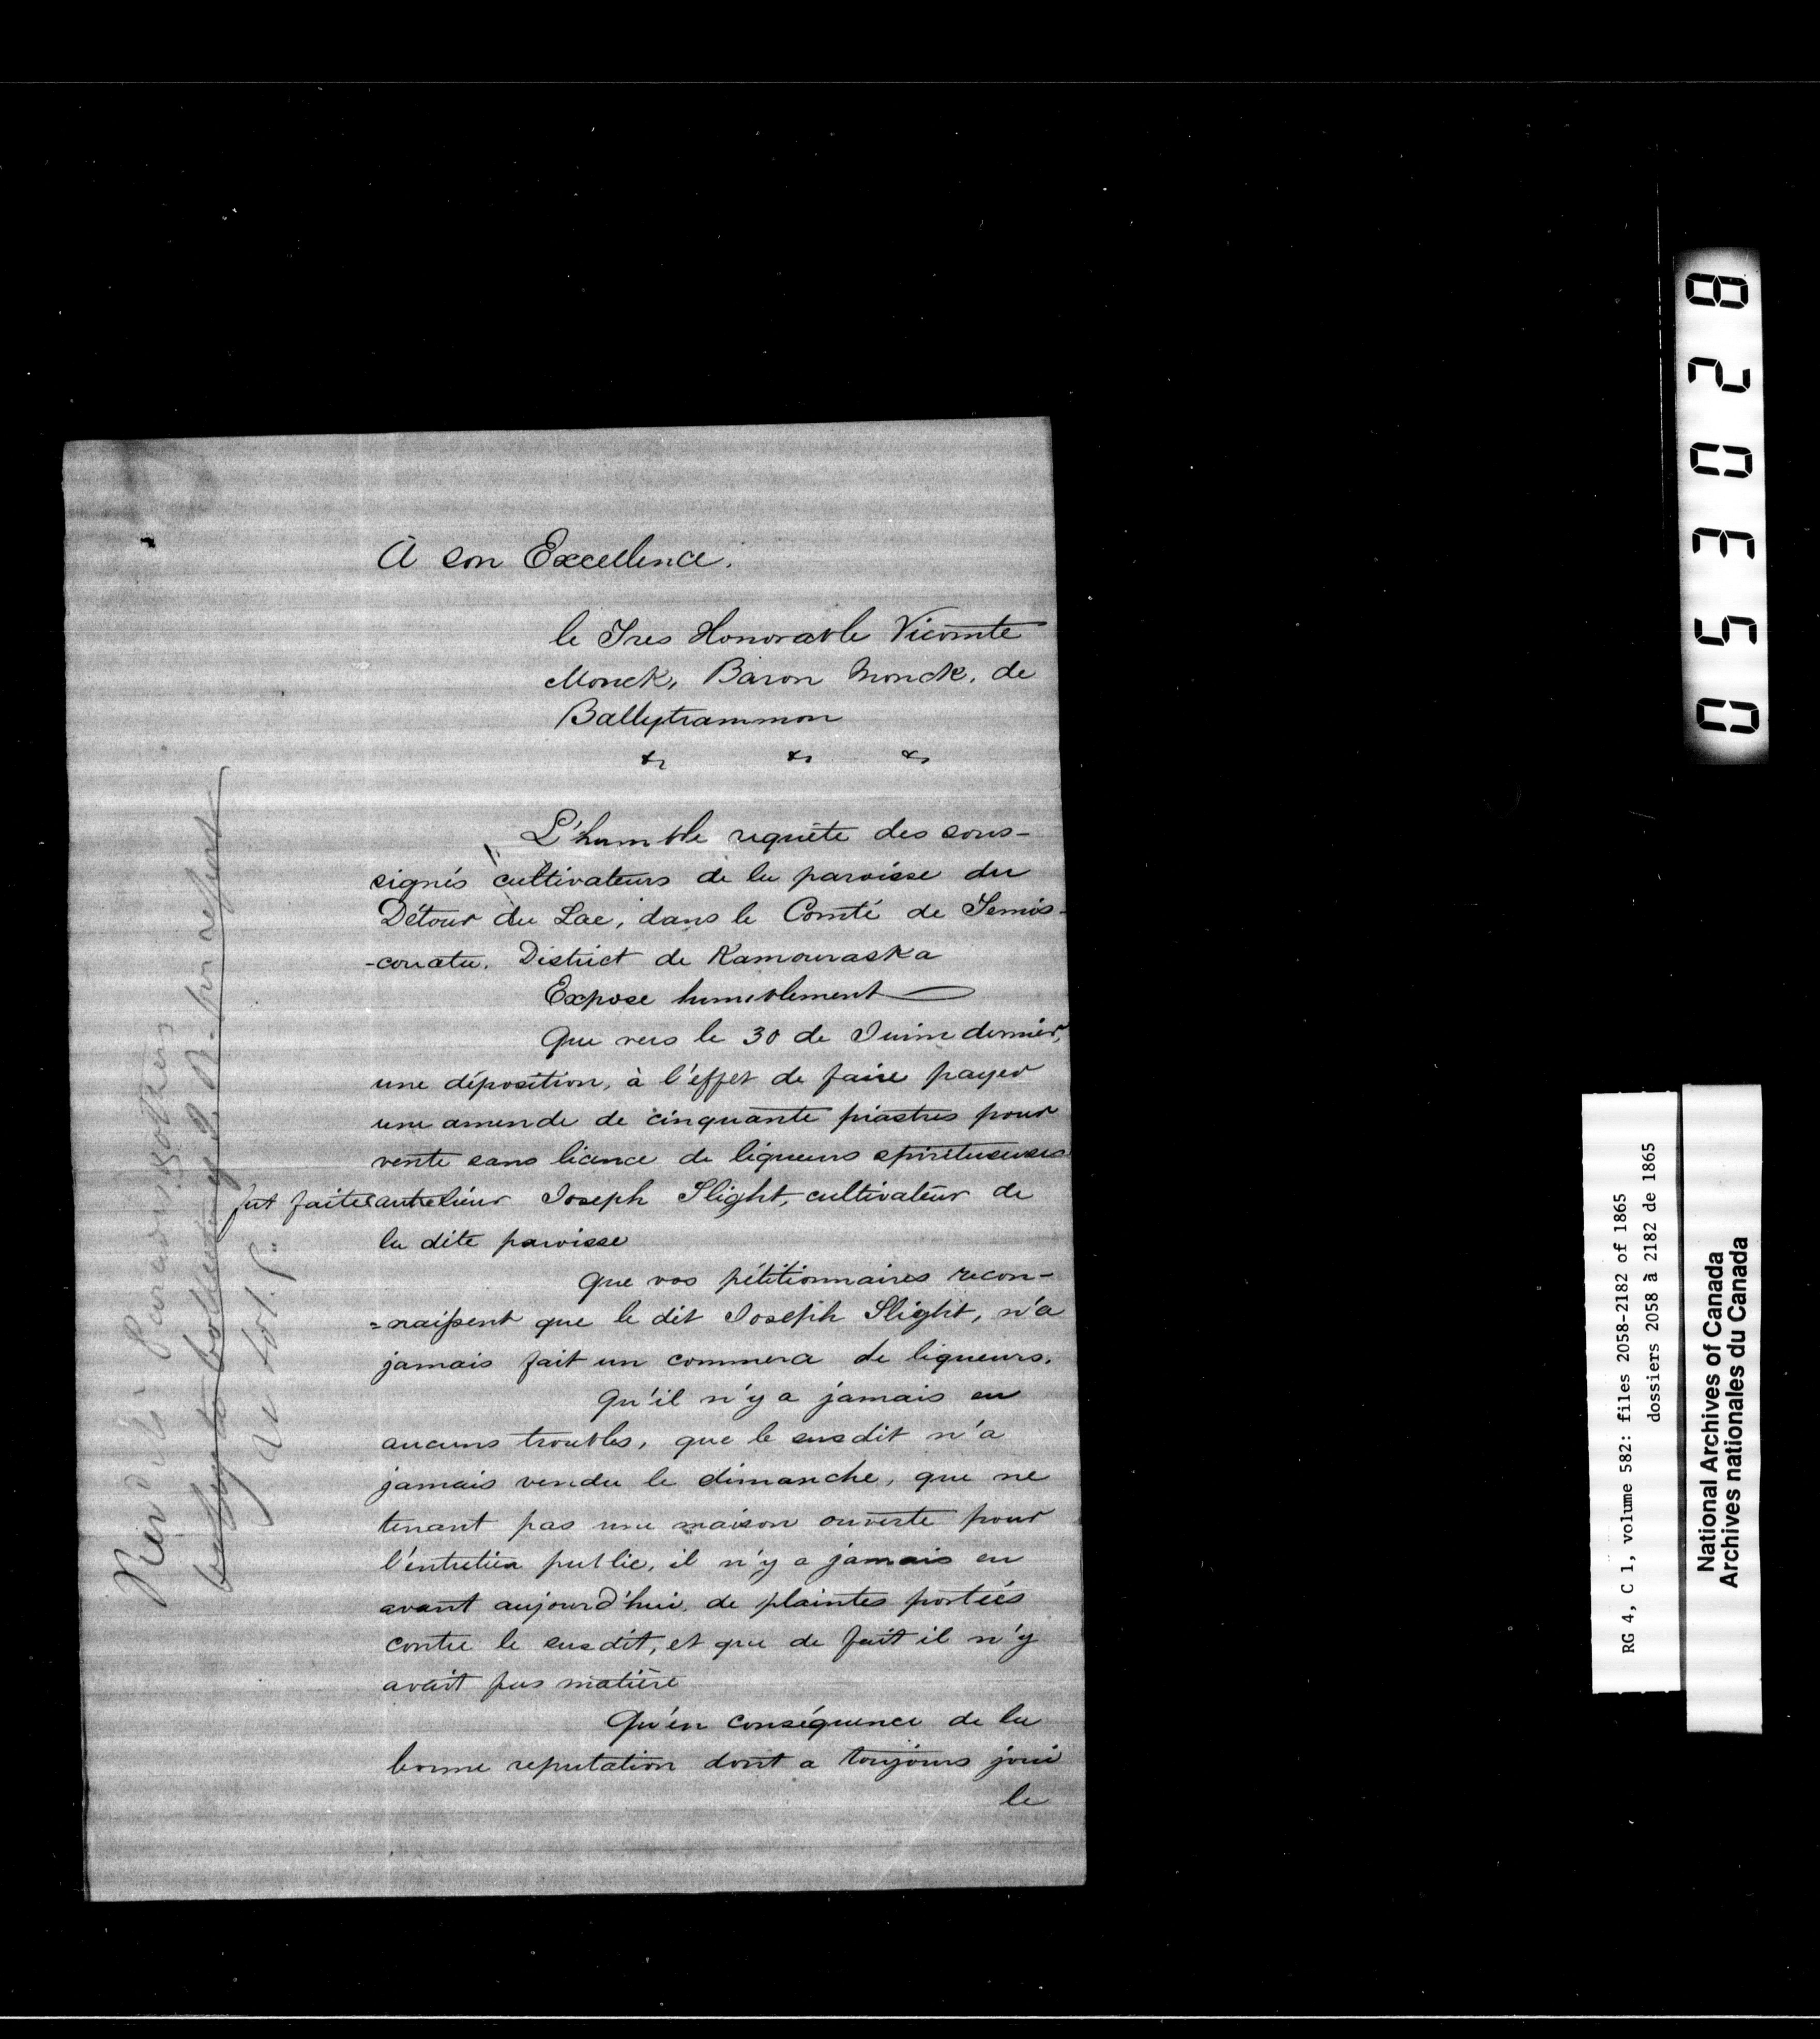 À son Excellence,
le Tres Honorable Vicomte
Monck, Baron Monck, de
Ballytrammon
&c &c &c
L'humble requête des sous-
signés cultivateurs de la paroisse du
Détour du Lac, dans le Comté de Temis-
-couata, District de Kamouraska
Expose humblement
Que vers le 30 de Juin dernier,
une déposition, à l'effet de faire payer
une amende de cinquante piastres pour
vente sans licence de liqueurs spiritueuses
fut faite Joseph Slight, cultivateur de
la dite paroisse
Que vos pétitionnaires recon-
=naissent que le dit Joseph Slight, n'a
jamais fait un commerce de liqueurs.
Qu'il n'y a jamais eu
aucuns troubles, que le susdit n'a
jamais vendu le dimanche, que ne
tenant pas une maison ouverte pour
l'entretien public, il n'y a jamais eu
avant aujourd'hui, de plaintes portées
contre le susdit, et que de fait il n'y
avait pas matière
Qu'en conséquence de la
bonne reputation dont a toujours joui
le
for report
820350
RG 4, C 1, volume 582: files 2058-2182 of 1865
dossiers 2058 à 2182 de 1865
National Archives of Canada
Archives nationales du Canada